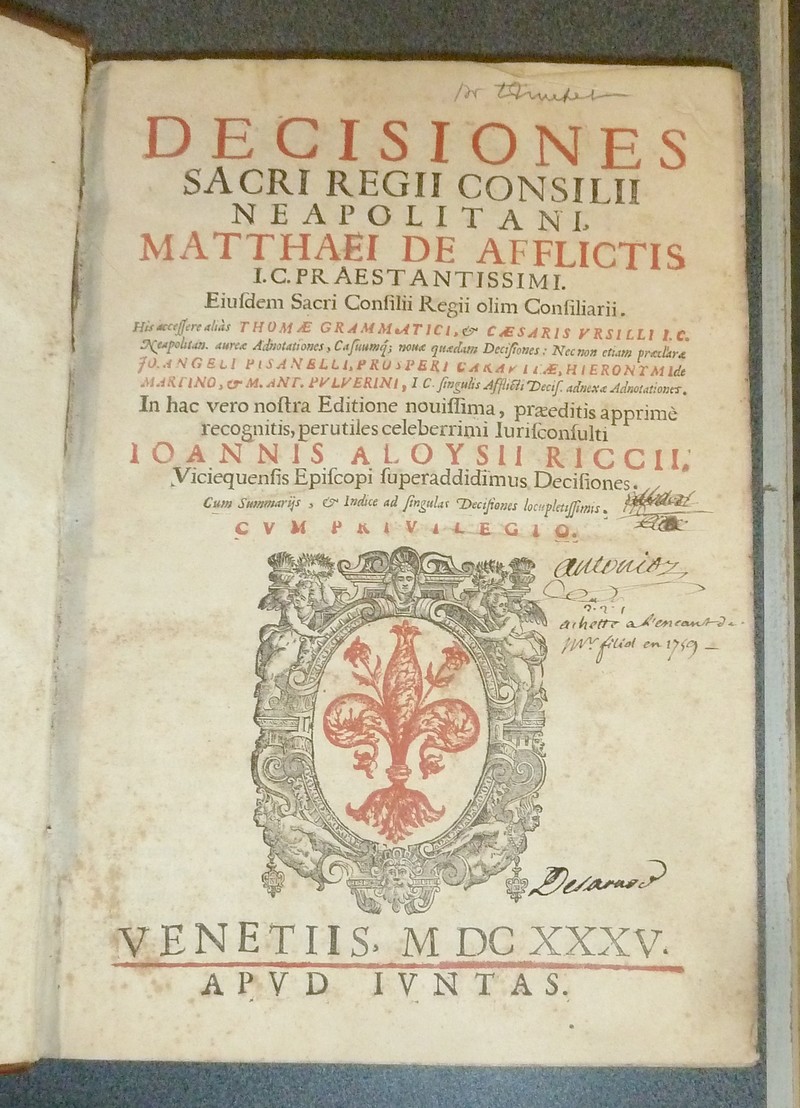 DECISIONES
SACRI REGII CONSILII
NEAPOLITANI,
MATTHAEI DE AFFLICTIS
I.C. PRAESTANTISSIMI.
Eiuſdem Sacri Conſilii Regii olim Conſiliarii.
His acceſſere aliàs THOMÆ GRAMMATICI, & CÆSARIS VRSILLI I.C.
Neapolitan. aureæ Adnotationes, Caſuumq; nouæ quædam Deciſiones: Necnon etiam præclaræ
JO. ANGELI PISANELLI, PROSPERI CARAVITÆ, HIERONYMI de
MARTINO, & M. ANT. PVLVERINI, I C. ſingulis Afflicti Deciſ. adnexæ Adnotationes.
In hac vero noſtra Editione nouiſſima, præeditis apprimè
recognitis, perutiles celeberrimi Iuriſconſulti
IOANNIS ALOYSII RICCII,
Viciequenſis Epiſcopi ſuperaddidimus Deciſiones.
Cum Summarijs, & Indice ad ſingulas Deciſiones locupletiſſimis.
CVM PRIVILEGIO.
antonioz
achetté a l'encant de
Mr. filiol en 1759
VENETIIS, M DC XXXV.
APVD IVNTAS.